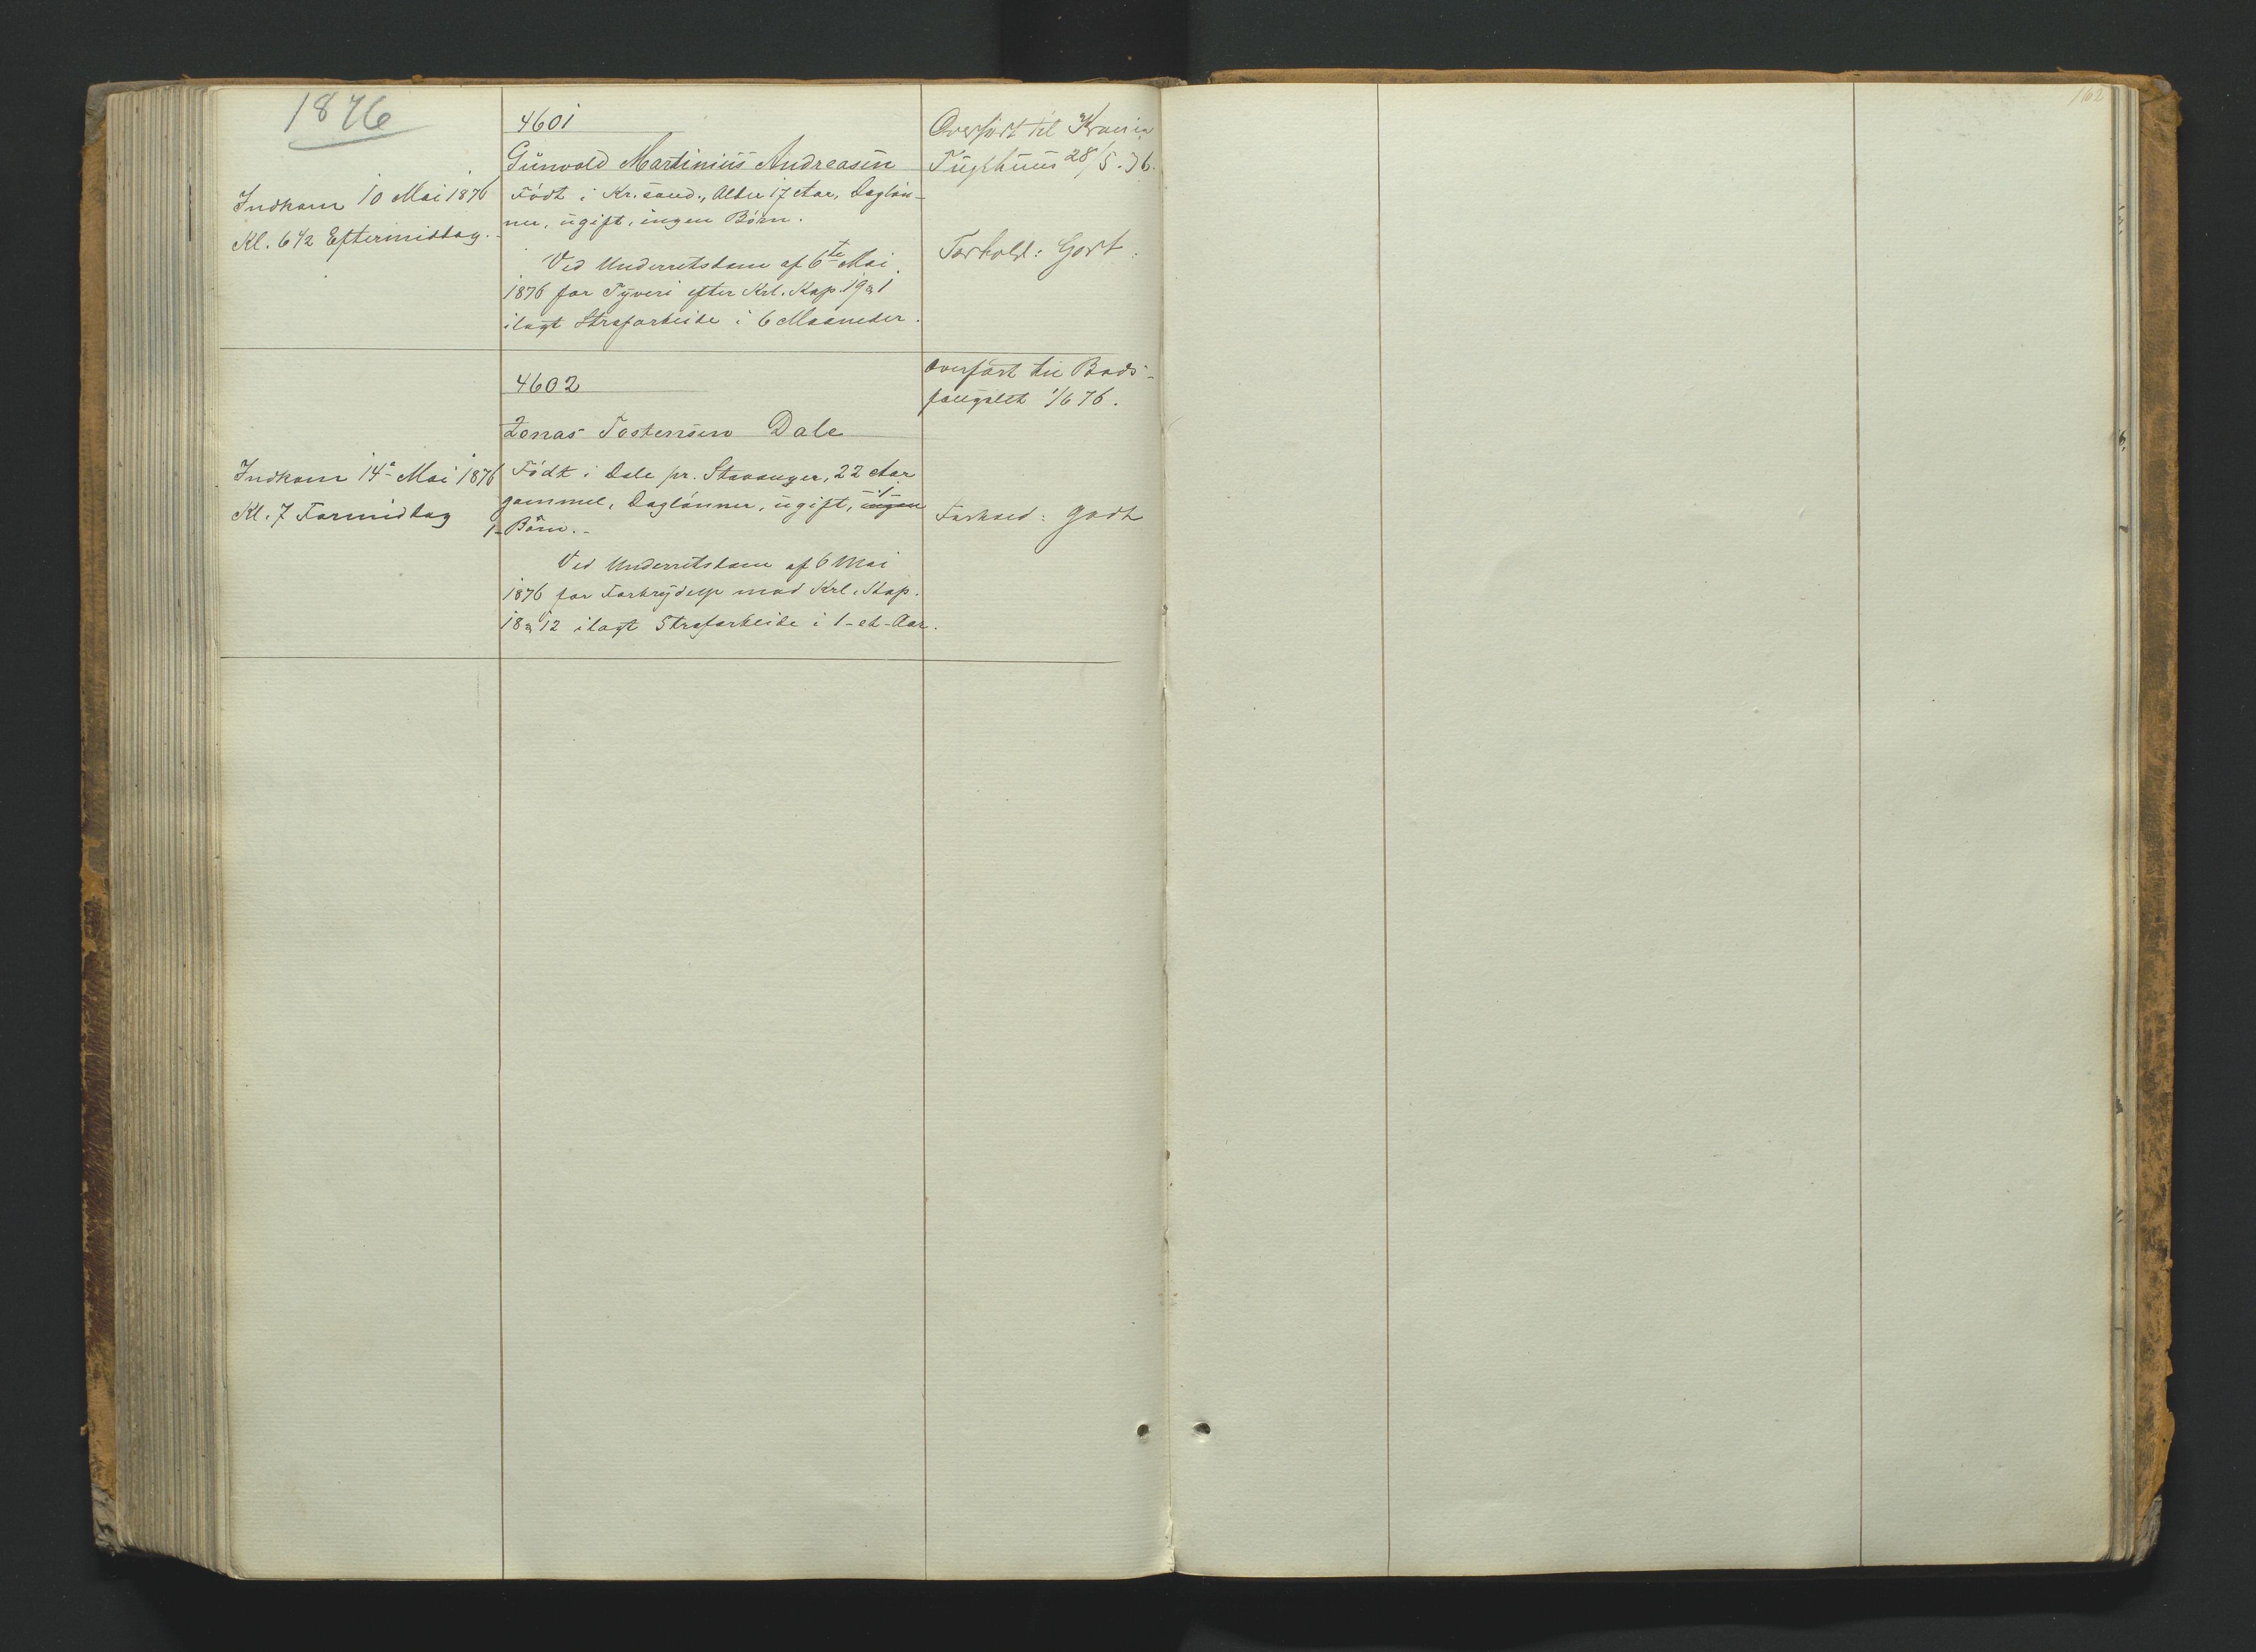 1876
162
4601
Gunvold Martinius Andreasen
Indkom 10 Mai 1876
Kl. 6 1/2 Eftermiddag.
Født i Kr.sand., Alder 17 Aar, Dagløn-
ner, ugift, ingen Børn.
Ved Underretsdom af 6te Mai
1876 for Tyveri efter Krl. Kap. 19 § 1
ilagt Strafarbeide i 6 Maaneder.
Overført til
Tugthuus 28/5.76.
Forhold: Godt.
4602
Zenas Tostensen Dale
Indkom 14de Mai 1876
Kl. 7 Formiddag
Født i Dale pr. Stavanger, 22 Aar
gammel, Daglønner, ugift, ingen -1-
1- Børn.-
Ved Underretsdom af 6 Mai
1876 for Forbrydelse mod Krl. Kap.
18 § 12 ilagt Strafarbeide i 1-et-Aar.
Overført til Bods-
fængslet 1/6 76.
Forhold: godt